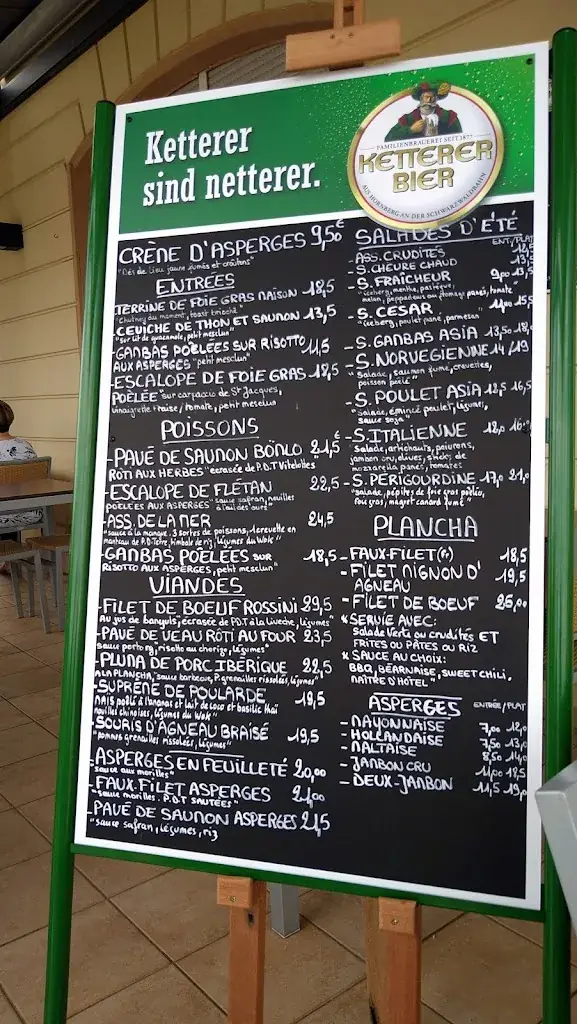 Ketterer
sind netterer.
FAMILIENBRAUEREI SEIT 1877
KETTERER
BIER
AUS HORNBERG AN DER SCHWARZWALDBAHN
CRÈME D'ASPERGES 9,50€
"Dés de lieu jaune fumés et croûtons"
ENTRÉES
TERRINE DE FOIE GRAS MAISON 18,5
"Chutney du moment, toast brioché"
-CEVICHE DE THON ET SAUMON 13,5
"sur lit de guacamole, petit mesclun"
-GAMBAS POÊLÉES SUR RISOTTO 11,5
AUX ASPERGES "petit mesclun"
-ESCALOPE DE FOIE GRAS 18,5
POÊLÉE "sur carpaccio de St Jacques,
vinaigrette fraise/tomate, petit mesclun
POISSONS
-PAVÉ DE SAUMON BÖMLO 21,5€
RÔTI AUX HERBES "écrasée de P.D.T Vitelottes
-ESCALOPE DE FLÉTAN 22,5
POÊLÉES AUX ASPERGES "sauce safran, nouilles
à l'ail des ours"
-ASS. DE LA MER 24,5
"sauce à la mangue. 3 sortes de poissons, 1 crevette en
manteau de P.D.Terre, timbale de riz, légumes du Wok"
-GAMBAS POÊLÉES SUR 18,5
RISOTTO AUX ASPERGES, petit mesclun"
VIANDES
-FILET DE BOEUF ROSSINI 29,5
Au jus de banyuls, écrasée de P.D.T à la livèche, légumes"
-PAVÉ DE VEAU RÔTI AU FOUR 23,5
sauce porto rg, risotto au chorizo, légumes"
-PLUMA DE PORC IBÉRIQUE 22,5
A LA PLANCHA, "sauce barbecue, P. grenailles rissolées, légumes"
-SUPRÊME DE POULARDE 19,5
MAÏS poêlé à l'ananas et lait de coco et basilic thaï
nouilles chinoises, légumes du Wok"
-SOURIS D'AGNEAU BRAISÉ 19,5
"pommes grenailles rissolées, légumes"
-ASPERGES EN FEUILLETÉ 20,00
"sauce aux morilles"
-FAUX.FILET ASPERGES 21,00
"sauce morilles. P.D.T SAUTÉES"
-PAVÉ DE SAUMON ASPERGES 21,5
"sauce safran, légumes, riz
SALADES D'ÉTÉ
ENT/PLAT
-ASS. CRUDITÉS
-S. CHÈVRE CHAUD
-S. FRAÎCHEUR 9,00 13,5
"iceberg, menthe, pastèque,
melon, peppadous au fromage panés, tomate"
-S. CESAR 11,00 15,5
"iceberg, poulet pané, parmesan"
-S. GAMBAS ASIA 13,50 18,
-S. NORVEGIENNE 14/19
"Salade, saumon fumé, crevettes,
poisson poêlé"
-S. POULET ASIA 12,5 16,5
"salade, émincé poulet, légumes,
sauce soja"
-S. ITALIENNE 12,0
Salade, artichauts, poivrons,
jambon cru, olives, sticks de
mozzarella panés, tomates
-S. PÉRIGOURDINE 17,0 21,0
"salade, pépites de foie gras poêlé,
foie gras, magret canard fumé"
PLANCHA
-FAUX-FILET (Fr) 18,5
-FILET MIGNON D' 19,5
AGNEAU
-FILET DE BOEUF 26,00
* SERVIE AVEC:
Salade Verte ou crudités ET
FRITES OU PÂTES OU RIZ
* SAUCE AU CHOIX:
BBQ, BÉARNAISE, SWEET CHILI,
MAÎTRE D'HÔTEL
ASPERGES ENTRÉE/PLAT
-MAYONNAISE 7,00 12,0
-HOLLANDAISE 7,50 13,0
-MALTAISE 8,50 14,0
-JAMBON CRU 11,00 18,5
-DEUX-JAMBON 11,5 19,0